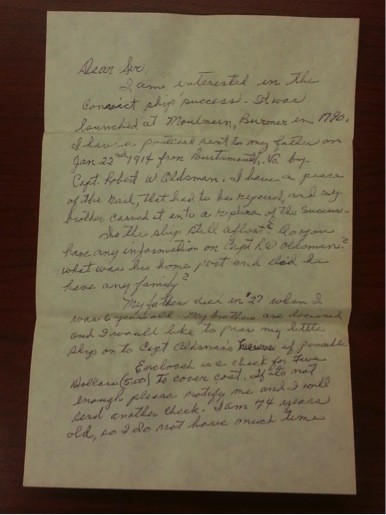 Dear Sir,
I am interested in the
Convict ship success. It was
launched at Moulmein, Burmer in 1790.
I have a postcard sent to my father on
Jan 22nd 1914 from Va by
Capt. Robert W Oldsman. I have a piece
of the that had to be and my
brother carved it into a replica of the Success.
Is the ship still afloat? Do you
have any information on Capt R W Oldsman?
what was his home port and did he
have any family?
My father died in '27 when I
was 6 years old. My brothers are deceased
and I would like to pass my little
ship on to Capt Oldsman's if possible
Enclosed is a check for Five
Dollars (5.00) to cover cost. If its not
enough please notify me and I will
send another check. I am 74 years
old, so I do not have much time